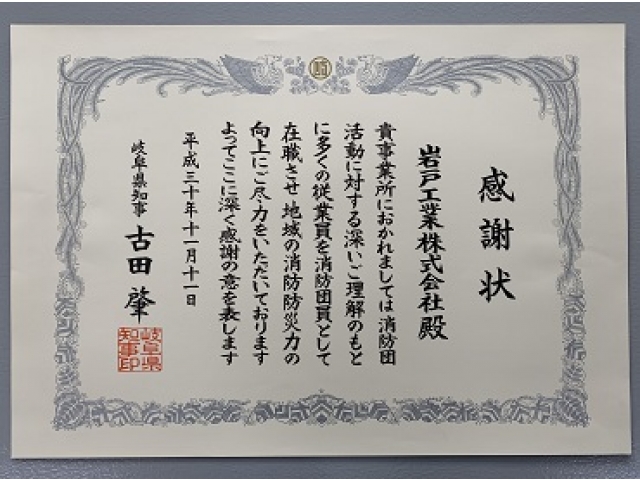 感謝状
岩戸工業株式会社殿
貴事業所におかれましては消防団
活動に対する深いご理解のもと
に多くの従業員を消防団員として
在職させ地域の消防防災力の
向上にご尽力をいただいております
よってここに深く感謝の意を表します
平成三十年十一月十一日
岐阜県知事 古田肇
岐阜県知事印